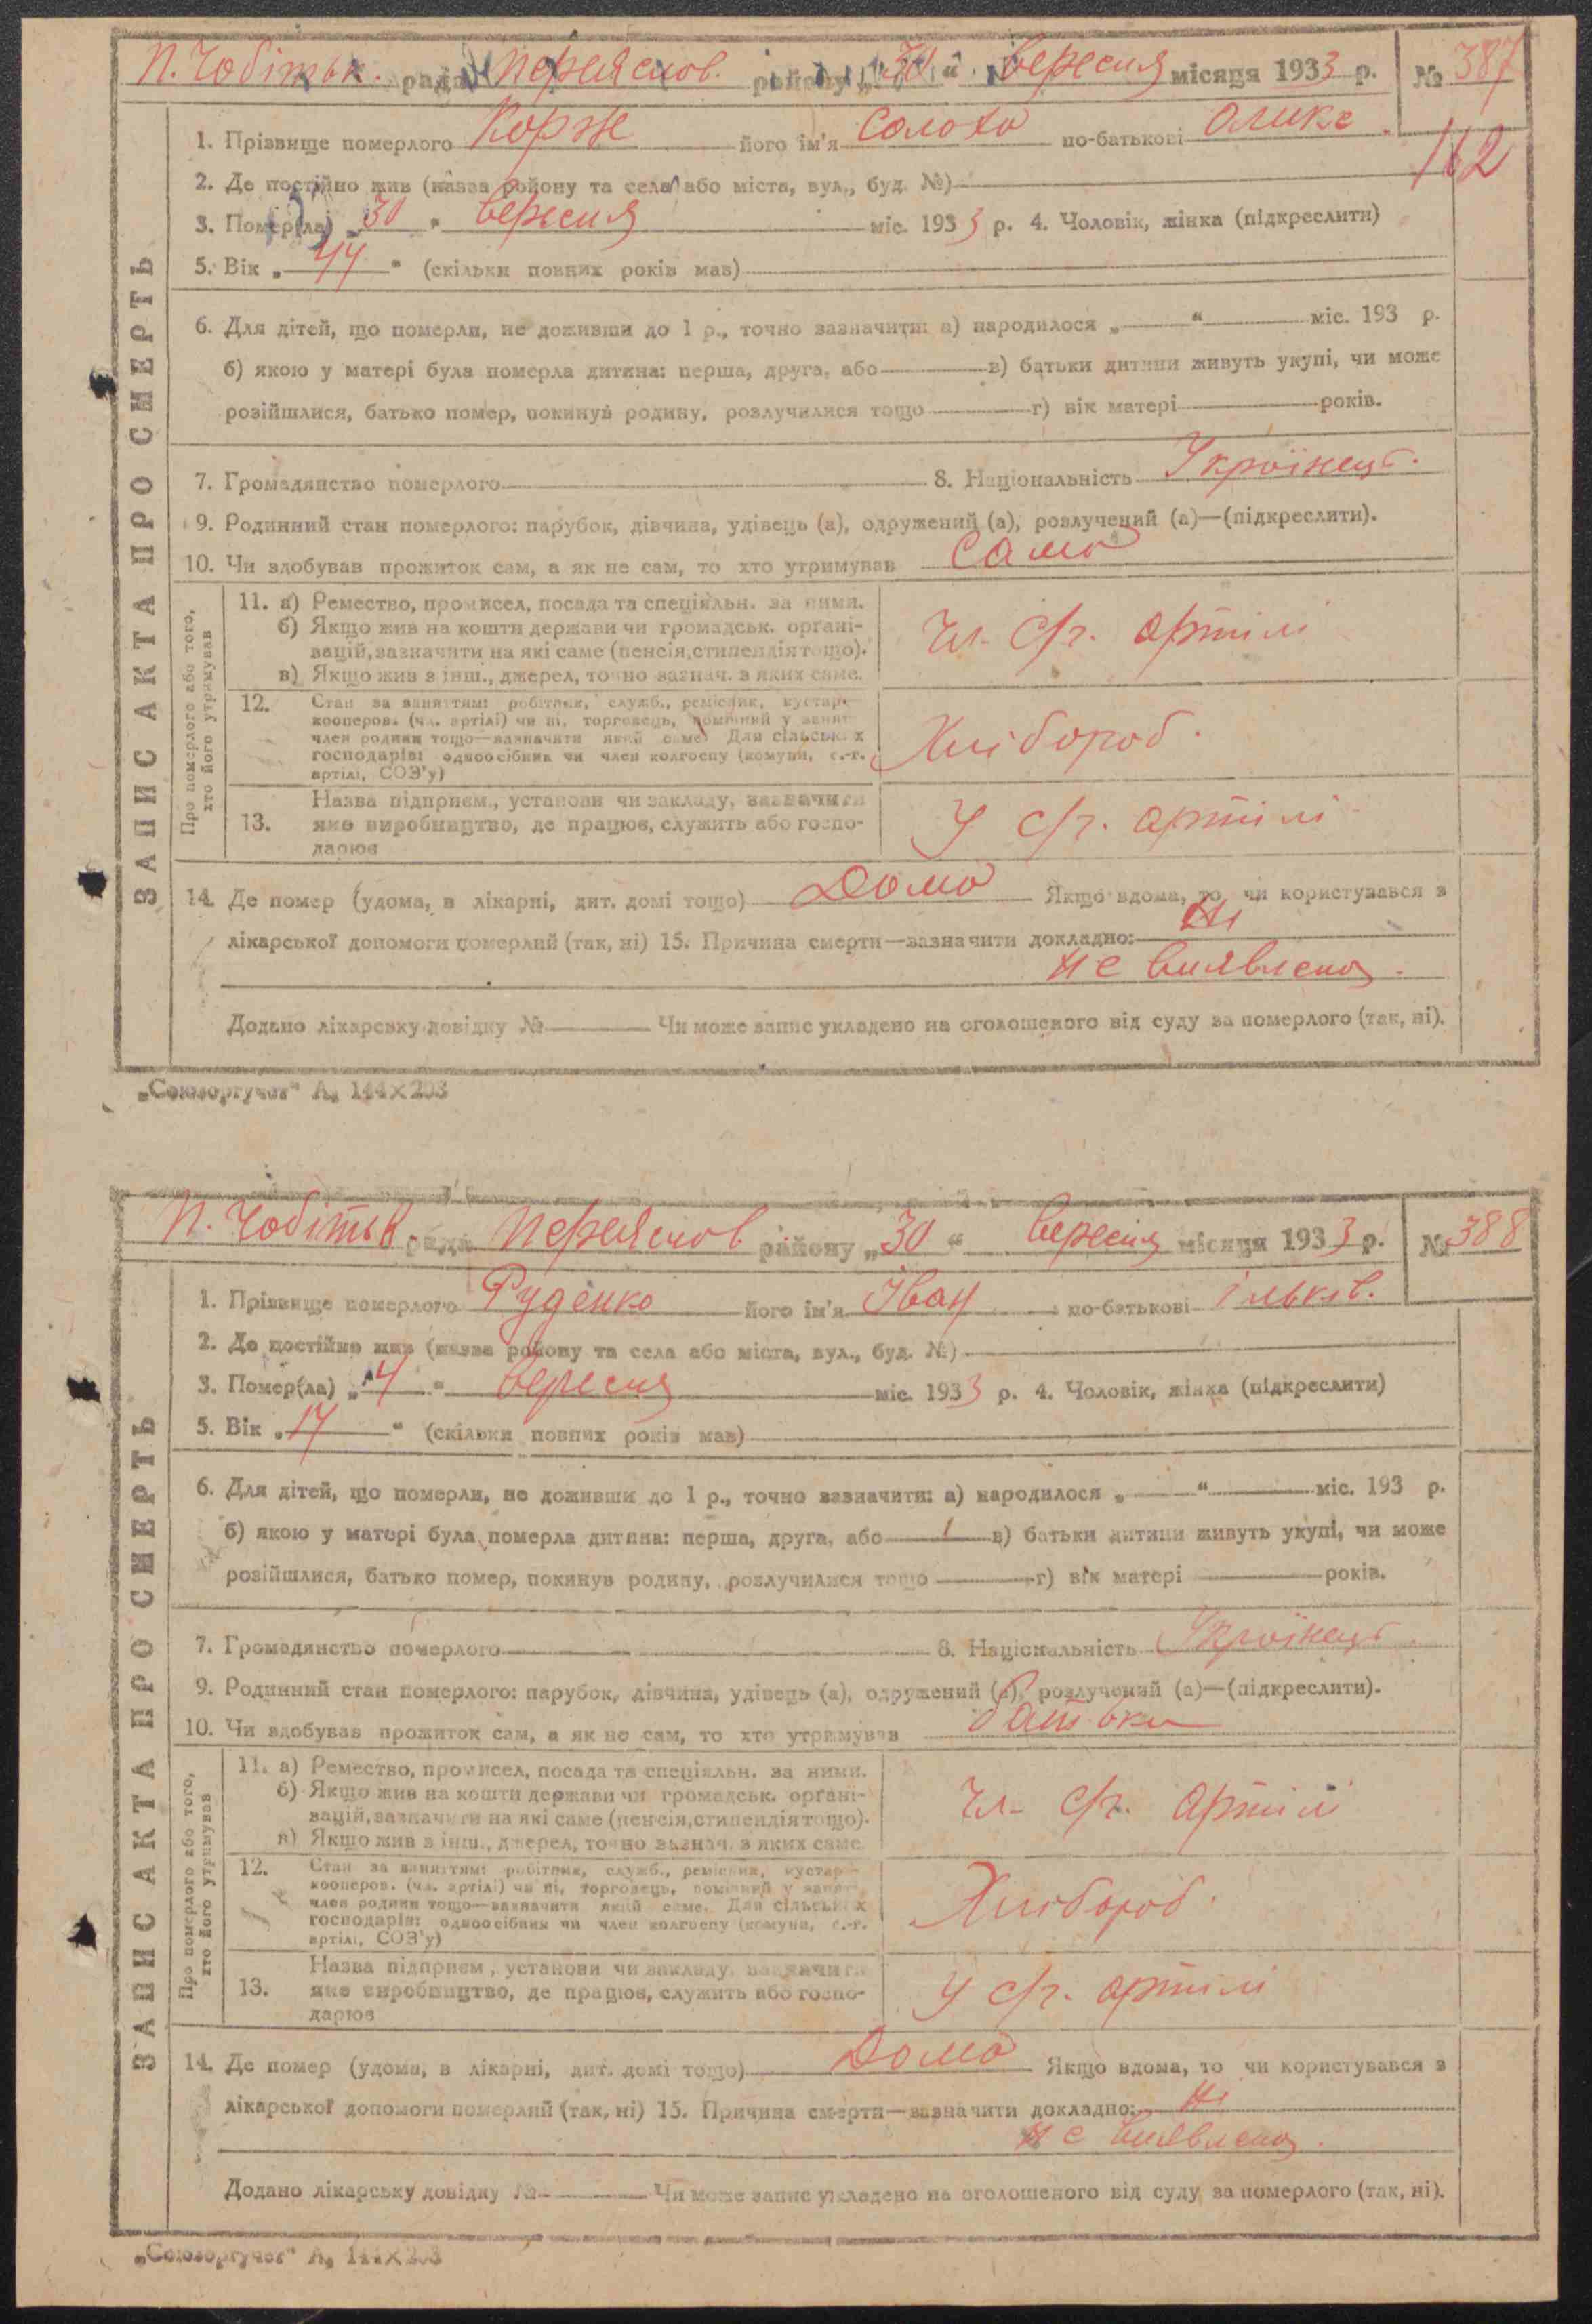 П. Чобітьк. рада Переяслов. району „30“ вересня місяця 1933 р. № 387
162
1. Прізвище померлого Корж його ім'я Солоха по-батькові
2. Де постійно жив (назва району та села або міста, вул., буд. №)
3. Помер(ла) „30“ вересня міс. 1933 р. 4. Чоловік, жінка (підкреслити)
5. Вік „44“ (скільки повних років мав)
6. Для дітей, що померли, не доживши до 1 р., точно зазначити: а) народилося „ “ міс. 193 р.
б) якою у матері була померла дитина: перша, друга, або в) батьки дитини живуть укупі, чи може
розійшлися, батько помер, покинув родину, розлучилися тощо г) вік матері років.
7. Громадянство померлого 8. Національність Україნець.
9. Родинний стан померлого: парубок, дівчина, удівець (а), одружений (а), розлучений (а)—(підкреслити).
10. Чи здобував прожиток сам, а як не сам, то хто утримував Сама
ЗАПИС АКТА ПРО СМЕРТЬ
Про померлого або того,
хто його утримував
11. а) Ремество, промисел, посада та спеціяльн. за ними.
б) Якщо жив на кошти держави чи громадськ. органі-
зацій, зазначити на які саме (пенсія, стипендія тощо).
в) Якщо жив з інш., джерел, точно зазнач. з яких саме.
Чл. с/г. артілі
12. Стан за заняттям: робітник, служб., ремісник, кустар-
кооперов. (чл. артілі) чи ні, торговець, помічний у занят.
член родини тощо—зазначити який саме. Для сільських
господарів: одноосібник чи член колгоспу (комуни, с.-г.
артілі, СОЗ'у)
Хлібороб.
13. Назва підприєм., установи чи закладу, зазначити
яке виробництво, де працює, служить або госпо-
дарює
У с/г. артілі
14. Де помер (удома, в лікарні, дит. домі тощо) Дома Якщо вдома, то чи користувався з
лікарської допомоги померлий (так, ні) 15. Причина смерти—зазначити докладно: ні
не виявлена.
Додано лікарську довідку № Чи може запис укладено на оголошеного від суду за померлого (так, ні).
„Союзоргучет“ А₅ 144×203
П. Чобітьк. рада Переяслов району „30“ вересня місяця 1933 р. № 388
1. Прізвище померлого Руденко його ім'я Іван по-батькові Ільків.
2. Де постійно жив (назва району та села або міста, вул., буд. №)
3. Помер(ла) „4“ вересня міс. 1933 р. 4. Чоловік, жінка (підкреслити)
5. Вік „17“ (скільки повних років мав)
6. Для дітей, що померли, не доживши до 1 р., точно зазначити: а) народилося „ “ міс. 193 р.
б) якою у матері була померла дитина: перша, друга, або в) батьки дитини живуть укупі, чи може
розійшлися, батько помер, покинув родину, розлучилися тощо г) вік матері років.
7. Громадянство померлого 8. Національність Українець
9. Родинний стан померлого: парубок, дівчина, удівець (а), одружений (а), розлучений (а)—(підкреслити).
10. Чи здобував прожиток сам, а як не сам, то хто утримував батьки
ЗАПИС АКТА ПРО СМЕРТЬ
Про померлого або того,
хто його утримував
11. а) Ремество, промисел, посада та спеціяльн. за ними.
б) Якщо жив на кошти держави чи громадськ. органі-
зацій, зазначити на які саме (пенсія, стипендія тощо).
в) Якщо жив з інш., джерел, точно зазнач. з яких саме
Чл. с/г. артілі
12. Стан за заняттям: робітник, служб., ремісник, кустар-
кооперов. (чл. артілі) чи ні, торговець, помічний у занят.
член родини тощо—зазначити який саме. Для сільських
господарів: одноосібник чи член колгоспу (комуни, с.-г.
артілі, СОЗ'у)
Хлібороб.
13. Назва підприєм., установи чи закладу, зазначити
яке виробництво, де працює, служить або госпо-
дарює
У с/г. артілі
14. Де помер (удома, в лікарні, дит. домі тощо) Дома Якщо вдома, то чи користувався з
лікарської допомоги померлий (так, ні) 15. Причина смерти—зазначити докладно: ні
не виявлена.
Додано лікарську довідку № Чи може запис укладено на оголошеного від суду за померлого (так, ні).
„Союзоргучет“ А₅ 144×203